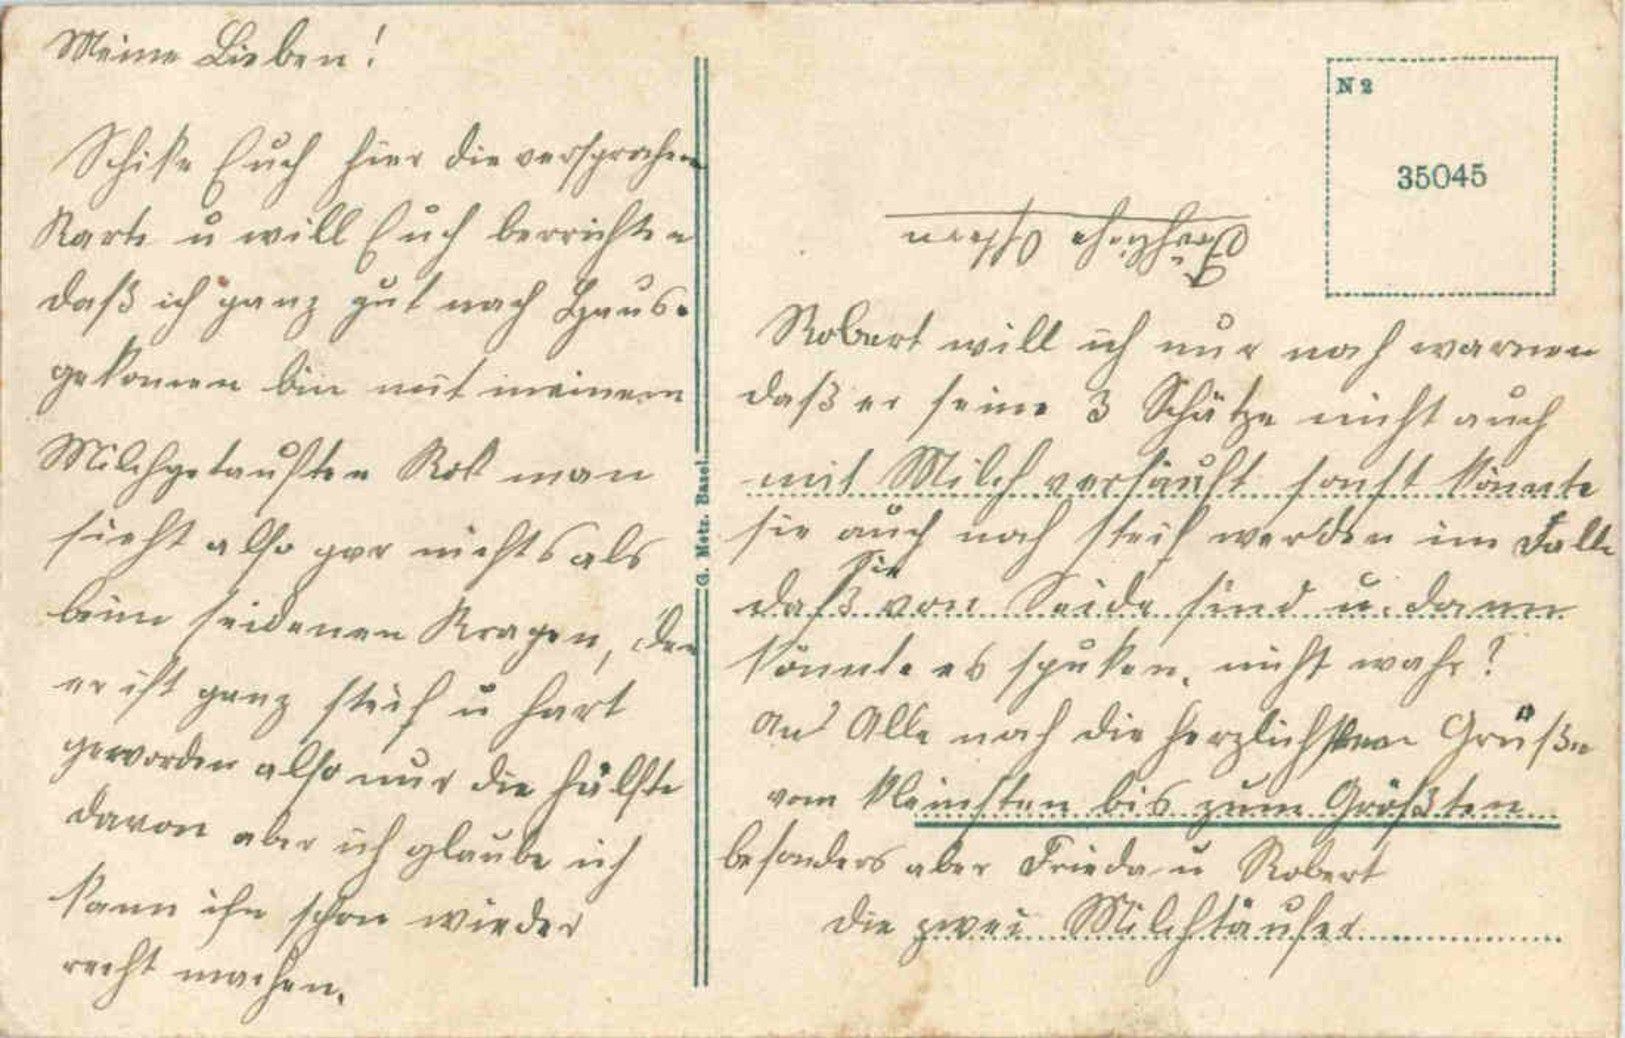 Meine Lieben!
Schike Euch hier die versprochene
Karte u will Euch berrichten
daß ich ganz gut nach Haus.
gekomen bin mit meinem
Milchgetauften Rok man
sieht also gar nichts als
beim seidenen Kragen, den
er ist ganz steif u hart
geworden also nur die hälfte
davon aber ich glaube ich
kann ihn schon wieder
recht machen.
G. Metz. Basel.
N 2
35045
Fröhliche Ostern
Robert will ich nur noch warnen
daß er seine 3 Schätze nicht auch
mit Milch versäuft sonst könnte
sie auch noch steif werden im Falle
daß sie von Seide sind u. dann
könnte es spuken. nicht wahr?
An Alle noch die herzlichsten Grüße
vom kleinsten bis zum Größten
besonders aber Frieda u Robert
die zwei Milchtäufer